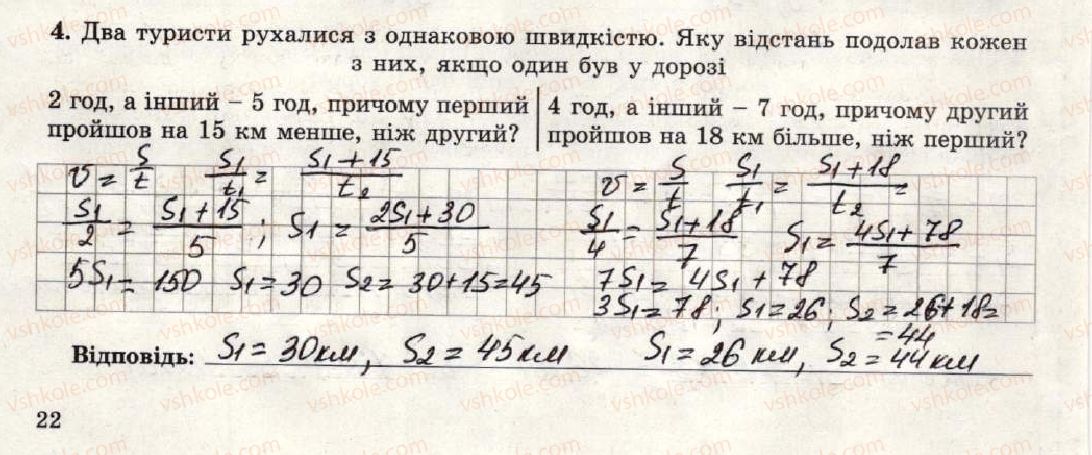 4. Два туристи рухалися з однаковою швидкістю. Яку відстань подолав кожен
з них, якщо один був у дорозі
2 год, а інший – 5 год, причому перший
пройшов на 15 км менше, ніж другий?
4 год, а інший – 7 год, причому другий
пройшов на 18 км більше, ніж перший?
v = S/t S1/t1 = S1+15/t2
S1/2 = S1+15/5 ; S1 = 2S1+30/5
5S1 = 150 S1 = 30 S2 = 30+15=45
v = S/t S1/t1 = S1+18/t2 =
S1/4 = S1+18/7 S1 = 4S1+78/7
7S1 = 4S1 + 78
3S1 = 78; S1 = 26; S2 = 26+18=
=44
Відповідь: S1 = 30км, S2 = 45км S1 = 26 км, S2 = 44км
22
vshkole.com